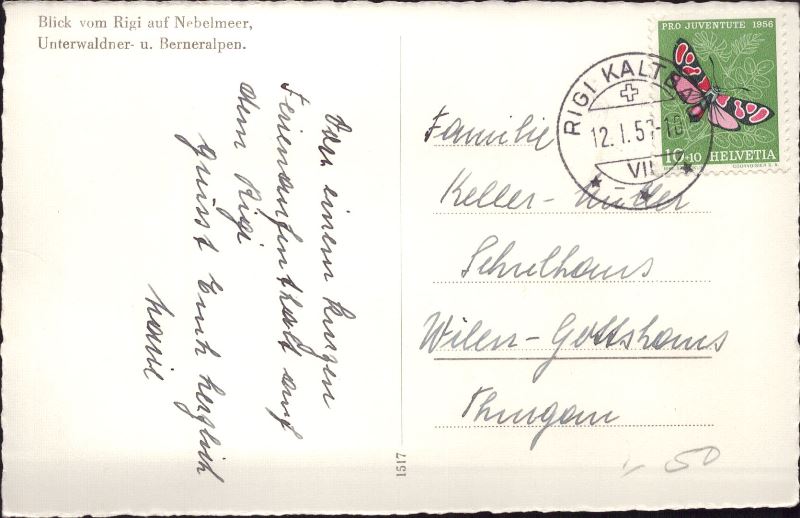 Blick vom Rigi auf Nebelmeer,
Unterwaldner- u. Berneralpen.
Von einem kurzen
Ferienaufenthalt auf
dem Rigi
grüsst Euch herzlich
1517
PRO JUVENTUTE 1956
10+10 HELVETIA
COURVOISIER S.A.
RIGI KALTBAD
12. I. 57-18
VII
Familie
Keller-Müller
Schulhaus
Wilen-Gottshaus
Thurgau
50